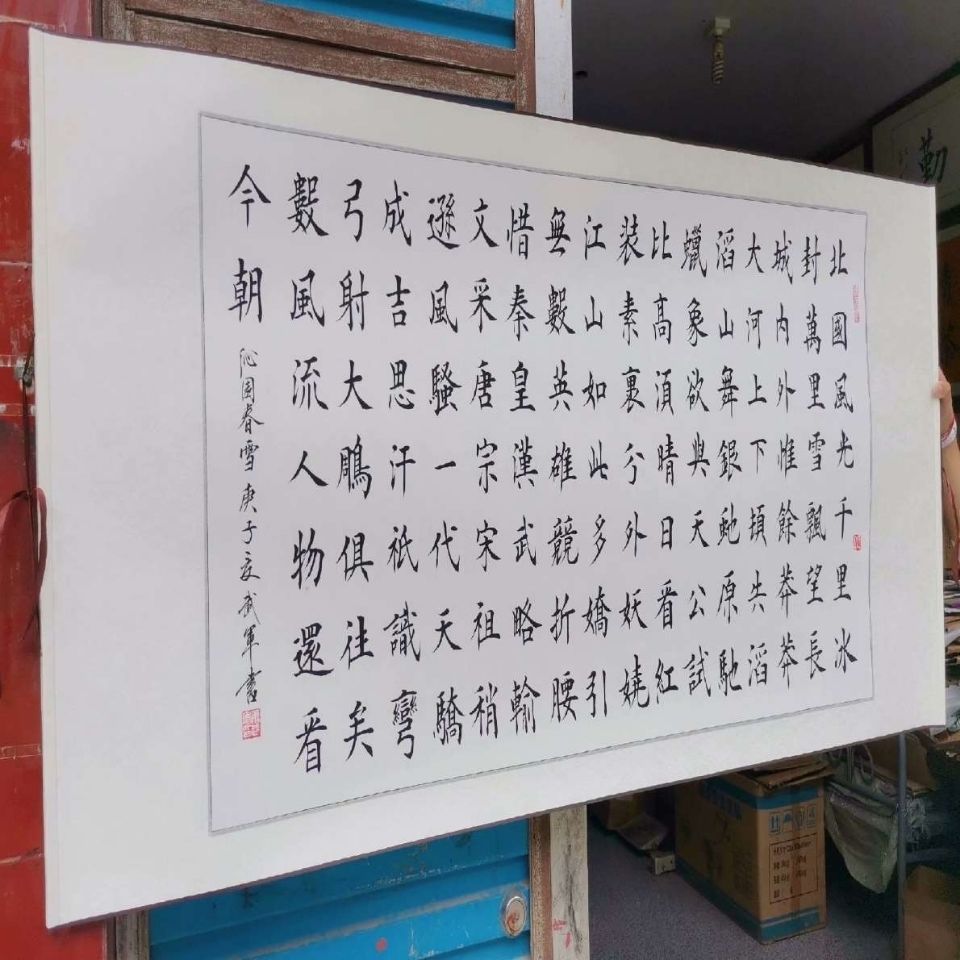 北國風光千里冰
封萬里雪飄望長
城内外惟餘莽莽
大河上下頓失滔
滔山舞銀虵原馳
蠟象欲與天公試
比高須晴日看紅
装素裹分外妖嬈
江山如此多嬌引
無數英雄競折腰
惜秦皇漢武略輸
文采唐宗宋祖稍
遜風騷一代天驕
成吉思汗祇識彎
弓射大鵰俱往矣
數風流人物還看
今朝
沁園春雪 庚子夏武軍書
勤